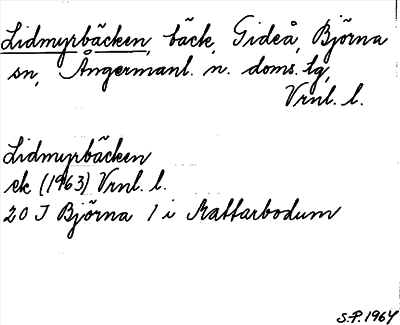 Lidmyrbäcken, bäck, Gideå, Björna
sn, Ångermanl. n. doms. tg,
Vrnl. l.
Lidmyrbäcken
ek (1963) Vrnl. l.
20 J Björna 1 i Mattarbodum
S.P. 1964